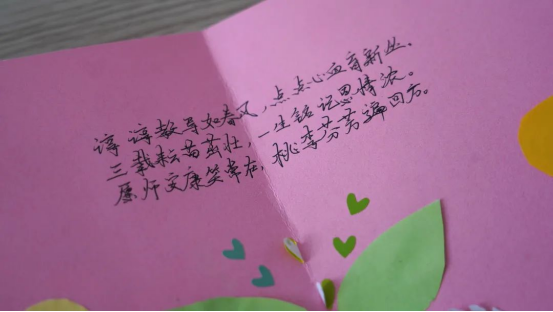 谆谆教导如春风，点点心血育新丛、
三载耘苗茁壮，一生铭记恩情浓。
愿师安康笑常在，桃李芬芳遍四方。